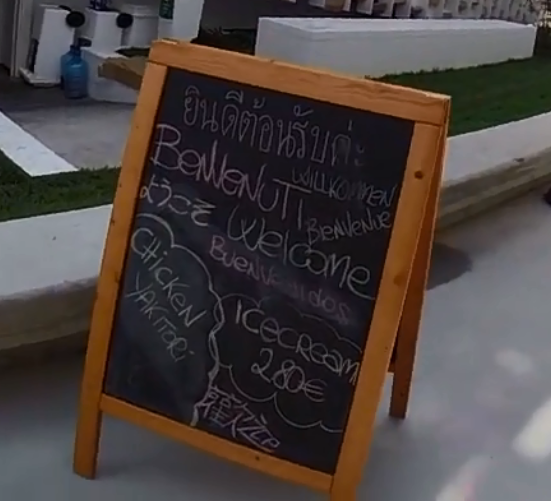 ยินดีต้อนรับค่ะ
BENVENUTI
WILLKOMMEN
ようこそ
Welcome
BIENVENUE
BUENVENIDOS
CHICKEN
YAKITORI
ICECREAM
2.80€